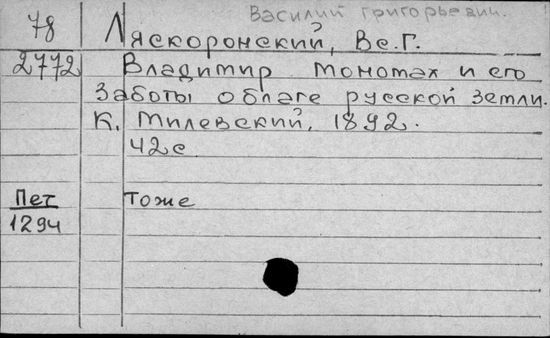 Василий Григорьевич.
78 Ляскоронский, Вс.Г.
2772 Владимир Мономах и его
заботы облаге русской земли.
К. Милевский, 1892.
42с
Пет тоже
1294